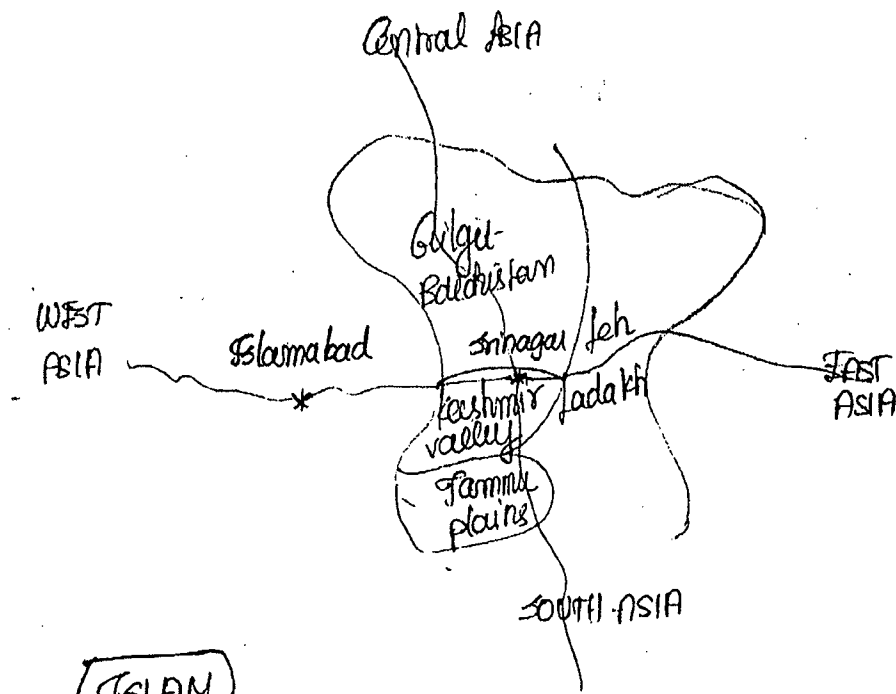 Central ASIA
Gilgit-
Baltistan
WEST
ASIA
Islamabad
Srinagar
Leh
EAST
ASIA
Kashmir
valley
Ladakh
Jammu
plains
SOUTH-ASIA
ISLAM